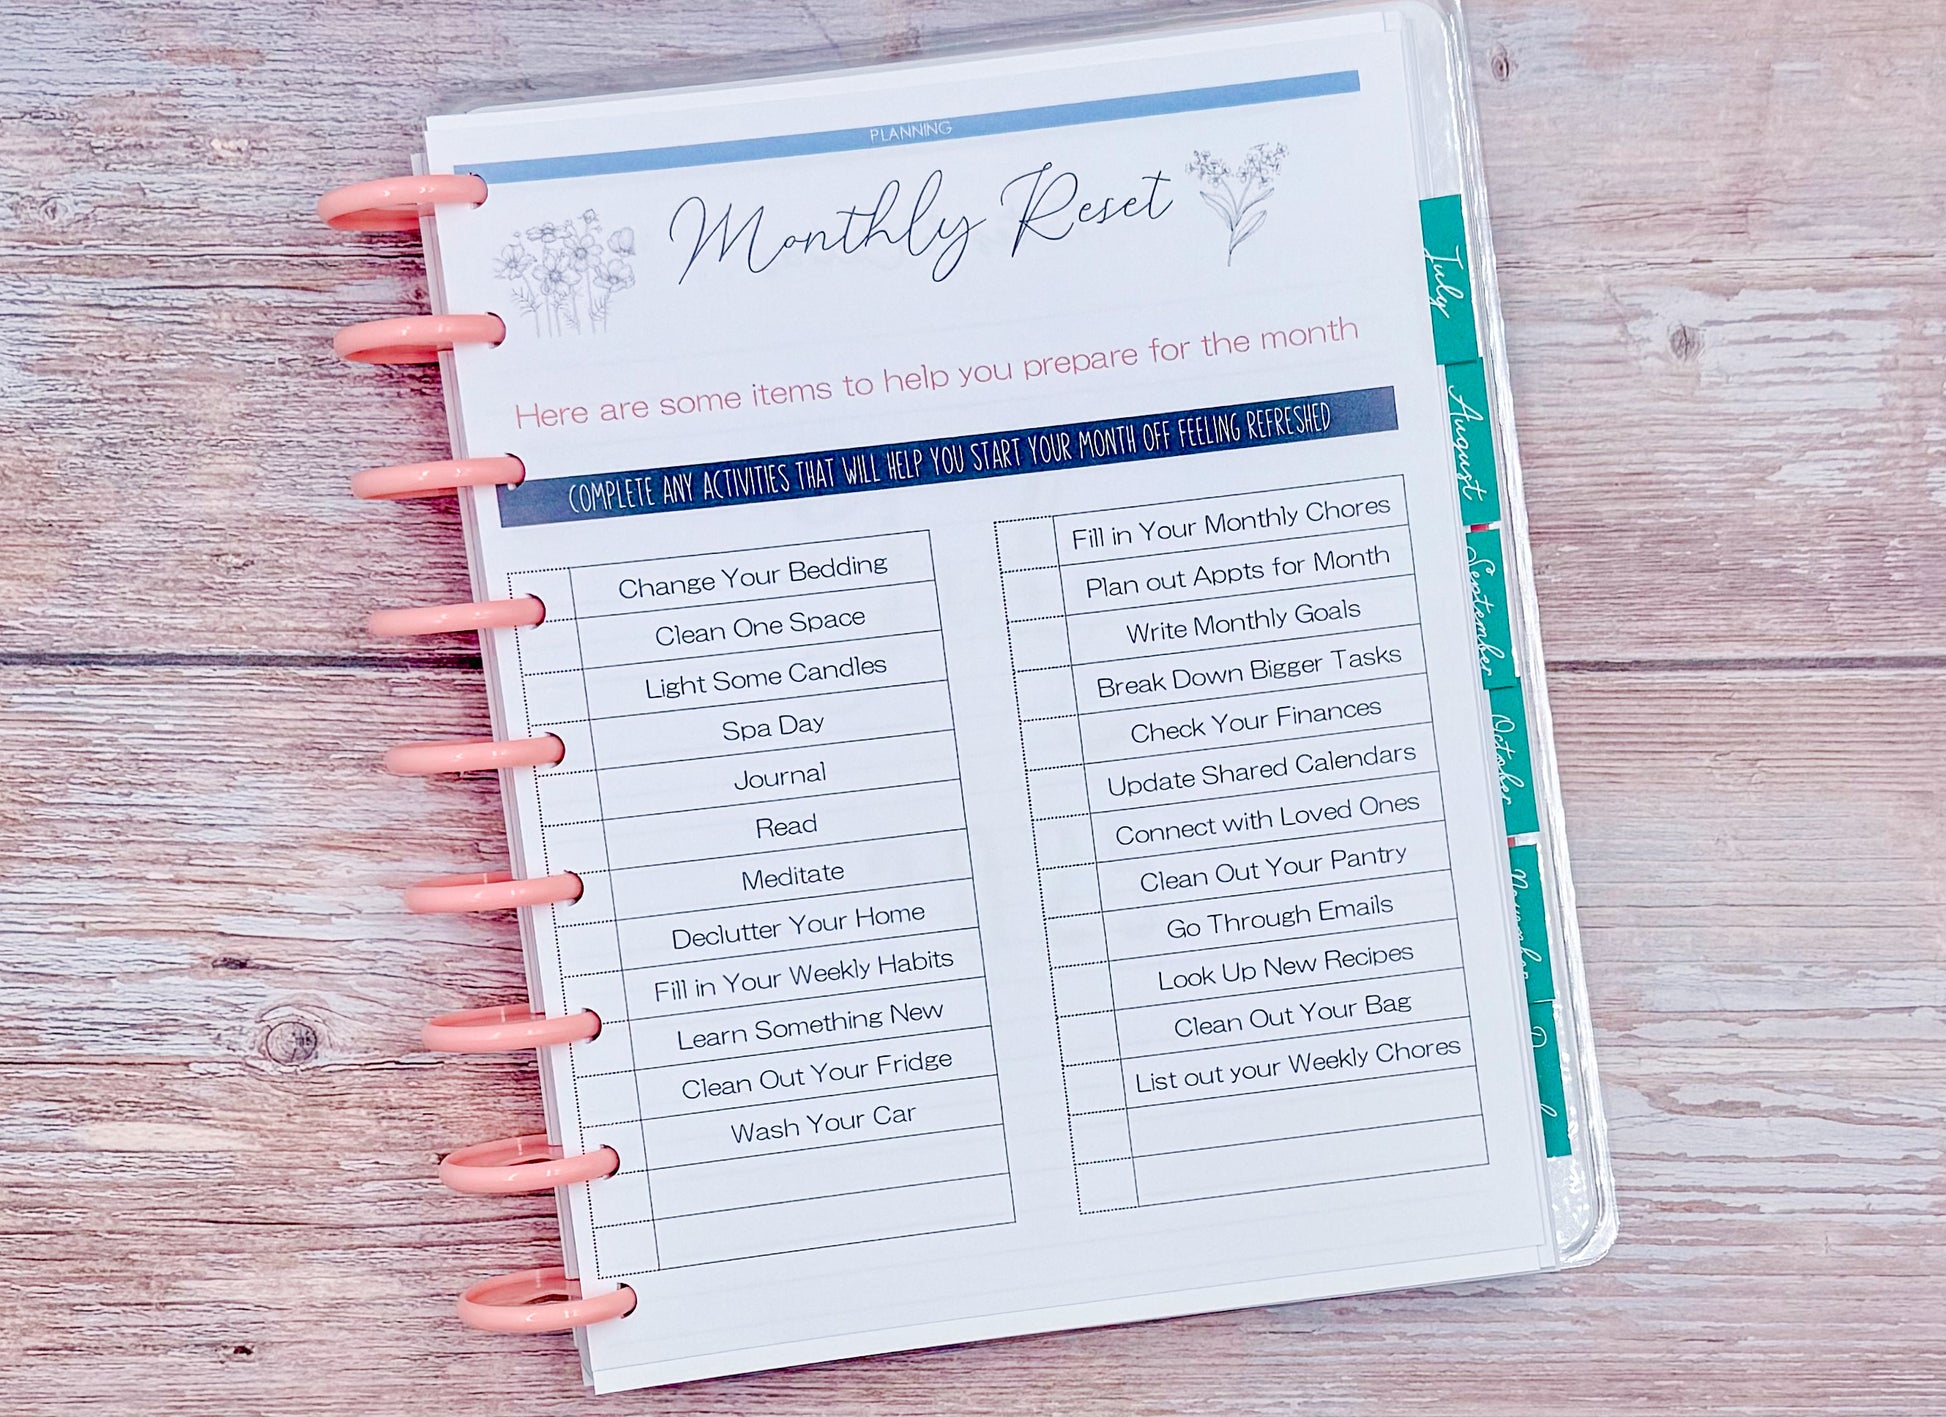 PLANNING
Monthly Reset
Here are some items to help you prepare for the month
COMPLETE ANY ACTIVITIES THAT WILL HELP YOU START YOUR MONTH OFF FEELING REFRESHED
Change Your Bedding
Clean One Space
Light Some Candles
Spa Day
Journal
Read
Meditate
Declutter Your Home
Fill in Your Weekly Habits
Learn Something New
Clean Out Your Fridge
Wash Your Car
Fill in Your Monthly Chores
Plan out Appts for Month
Write Monthly Goals
Break Down Bigger Tasks
Check Your Finances
Update Shared Calendars
Connect with Loved Ones
Clean Out Your Pantry
Go Through Emails
Look Up New Recipes
Clean Out Your Bag
List out your Weekly Chores
July
August
September
October
November